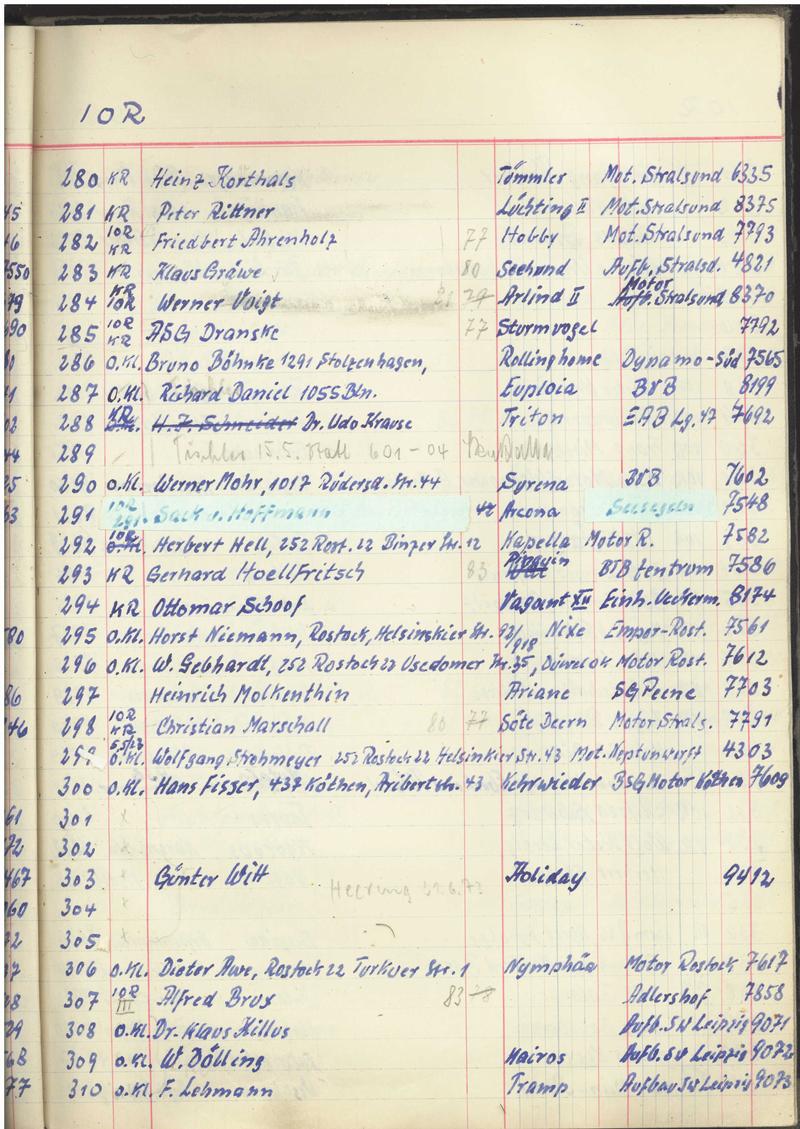 10R
280 KR Heinz Korthals Tömmler Mot. Stralsund 6335
45 281 KR Peter Rittner Lüchting II Mot. Stralsund 8375
46 282 10R KR Friedbert Ahrenholz 77 Hobby Mot. Stralsund 7793
7550 283 KR Klaus Gräwe 80 Seehund Aufb. Stralsd. 4821
79 284 KR 10R Werner Voigt 81 29 Arlind II Motor Aufb. Stralsund 8370
90 285 10R KR ASG Dranske 77 Sturmvogel 7792
286 O.Kl. Bruno Böhnke 1291 Stolzenhagen, Rollinghome Dynamo-Süd 7565
287 O.Kl. Richard Daniel 1055 Bln. Euploia BVB 8199
02 288 KR O.Kl. H.J. Schneider Dr. Udo Krause Triton EAB Lg. 47 7692
44 289 Tischler 15.5. 601-04
290 O.Kl. Werner Mohr, 1017 Rüdersd. Str. 44 Syrena BVB 7602
291 10R Sack u. Hoffmann Arcona Seesegeln 7548
292 10R O.Kl. Herbert Hell, 252 Rost. 22 Binzer Str. 12 Kapella Motor R. 7582
293 KR Gerhard Hoellfritsch 83 BVB Zentrum 7586
294 KR Ottomar Schoof Vagant XII Einh. Ueckerm. 8174
80 295 O.Kl. Horst Niemann, Rostock, Helsinskier Str. 92/918 Nixe Empor-Rost. 7561
296 O.Kl. W. Gebhardt, 252 Rostock 22 Usedomer Str. 35, Düwelok Motor Rost. 7612
86 297 Heinrich Molkenthin Ariane SG Peene 7703
46 298 10R KR Christian Marschall 80 77 Söte Deern Motor Strals. 7791
299 O.Kl. Wolfgang Strohmeyer 252 Rostock 22 Helsinkier Str. 43 Mot. Neptunwerft 4303
300 O.Kl. Hans Fisser, 437 Köthen, Aribertstr. 43 Kehrwieder BSG Motor Köthen 7609
61 301 x
72 302 x
467 303 Günter Witt Holiday 9412
Heerung
060 304 x
305 x
306 O.Kl. Dieter Awe, Rostock 22 Turkuer Str. 1 Nymphäa Motor Rostock 7617
307 10R III Alfred Brux 83 78 Adlershof 7858
29 308 O.Kl. Dr. Klaus Killus Aufb. SW Leipzig 9071
68 309 O.Kl. W. Dölling Kairos Aufb. SW Leipzig 9072
77 310 O.Kl. F. Lehmann Tramp Aufbau SW Leipzig 9073